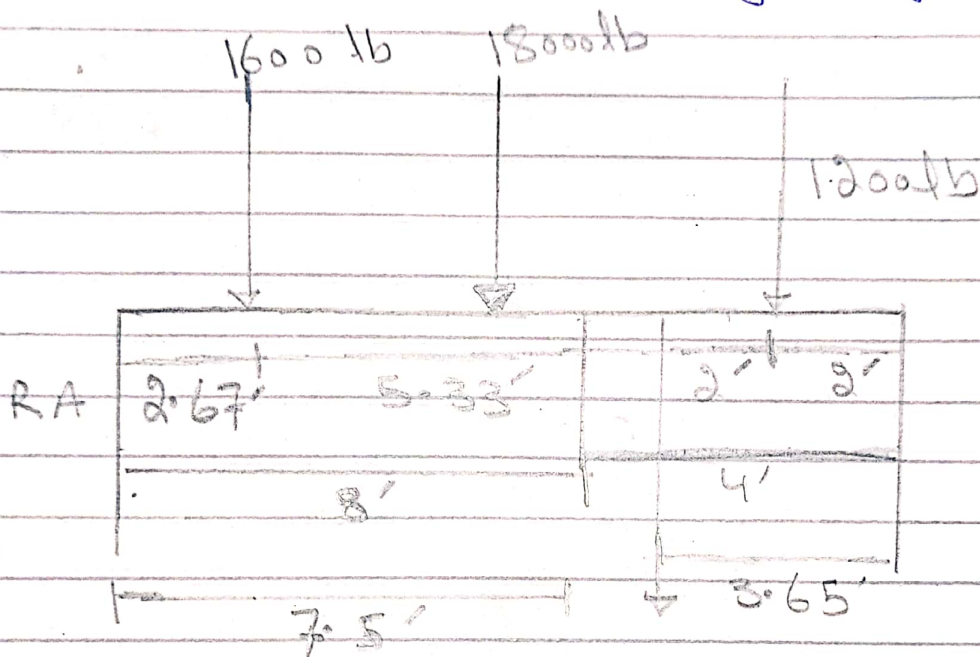 1600 lb 18000lb
1200lb
RA 2.67' 5.33' 2' 2'
8' 4'
7.5' 3.65'